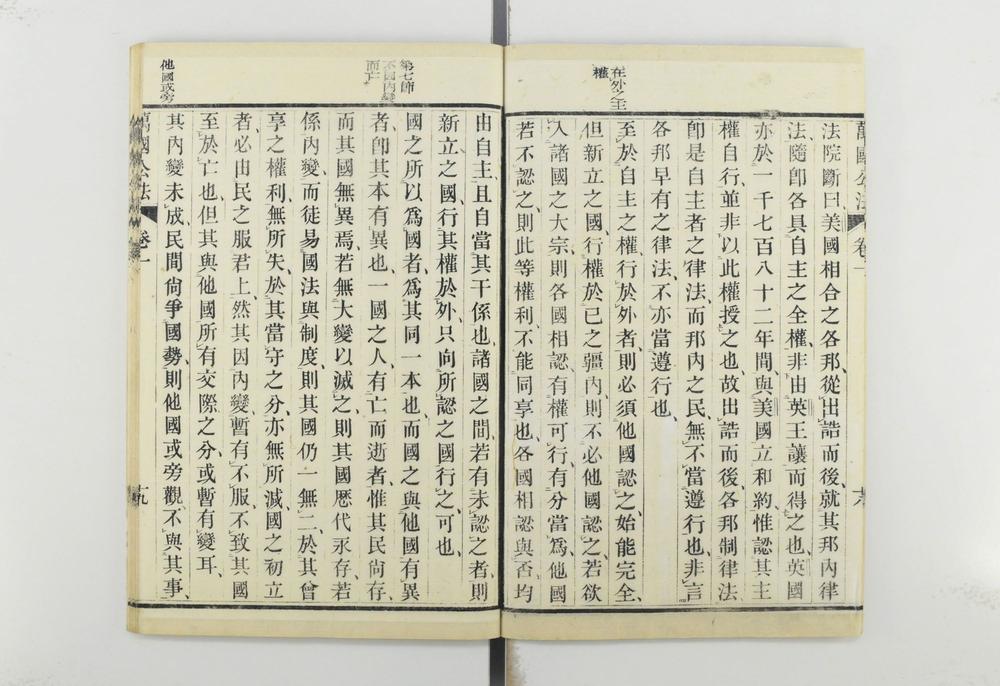 在外之主
權
法院斷曰美國相合之各邦從出誥而後就其邦內律
法隨卽各具自主之全權非由英王讓而得之也英國
亦於一千七百八十二年間與美國立和約惟認其主
權自行並非以此權授之也故出誥而後各邦制律法
卽是自主者之律法而邦內之民無不當遵行也非言
各邦早有之律法不亦當遵行也
至於自主之權行於外者則必須他國認之始能完全
但新立之國行權於己之疆內則不必他國認之若欲
入諸國之大宗則各國相認有權可行有分當爲他國
若不認之則此等權利不能同享也各國相認與否均
萬國公法
卷一
十八
第七節
不因內變
而亡
他國或旁
由自主且自當其干係也諸國之間若有未認之者則
新立之國行其權於外只向所認之國行之可也
國之所以爲國者爲其同一本也而國之與他國有異
者卽其本有異也一國之人有亡而逝者惟其民尙存
而其國無異焉若無大變以滅之則其國歷代永存若
係內變而徒易國法與制度則其國仍一無二於其曾
享之權利無所失於其當守之分亦無所減國之初立
者必由民之服君上然其因內變暫有不服不致其國
至於亡也但其與他國所有交際之分或暫有變耳
其內變未成民間尙爭國勢則他國或旁觀不與其事
萬國公法
卷一
十九